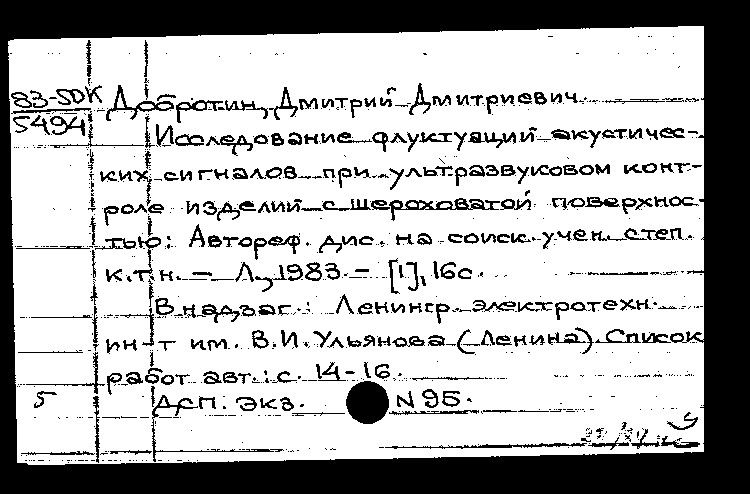 83-5ДК Добротин, Дмитрий Дмитриевич
5494
Исследование флуктуаций акустичес-
ких сигналов при ультразвуковом конт-
роле изделий с шероховатой поверхнос-
тью: Автореф. дис. на соиск. учен. степ.
к.т.н. – Л., 1983. – [1], 16с.
В надзаг.: Ленингр. электротехн.
ин-т им. В.И. Ульянова (Ленина). Список
работ авт.: с. 14-16.
5 ДСП. Экз. N 95.